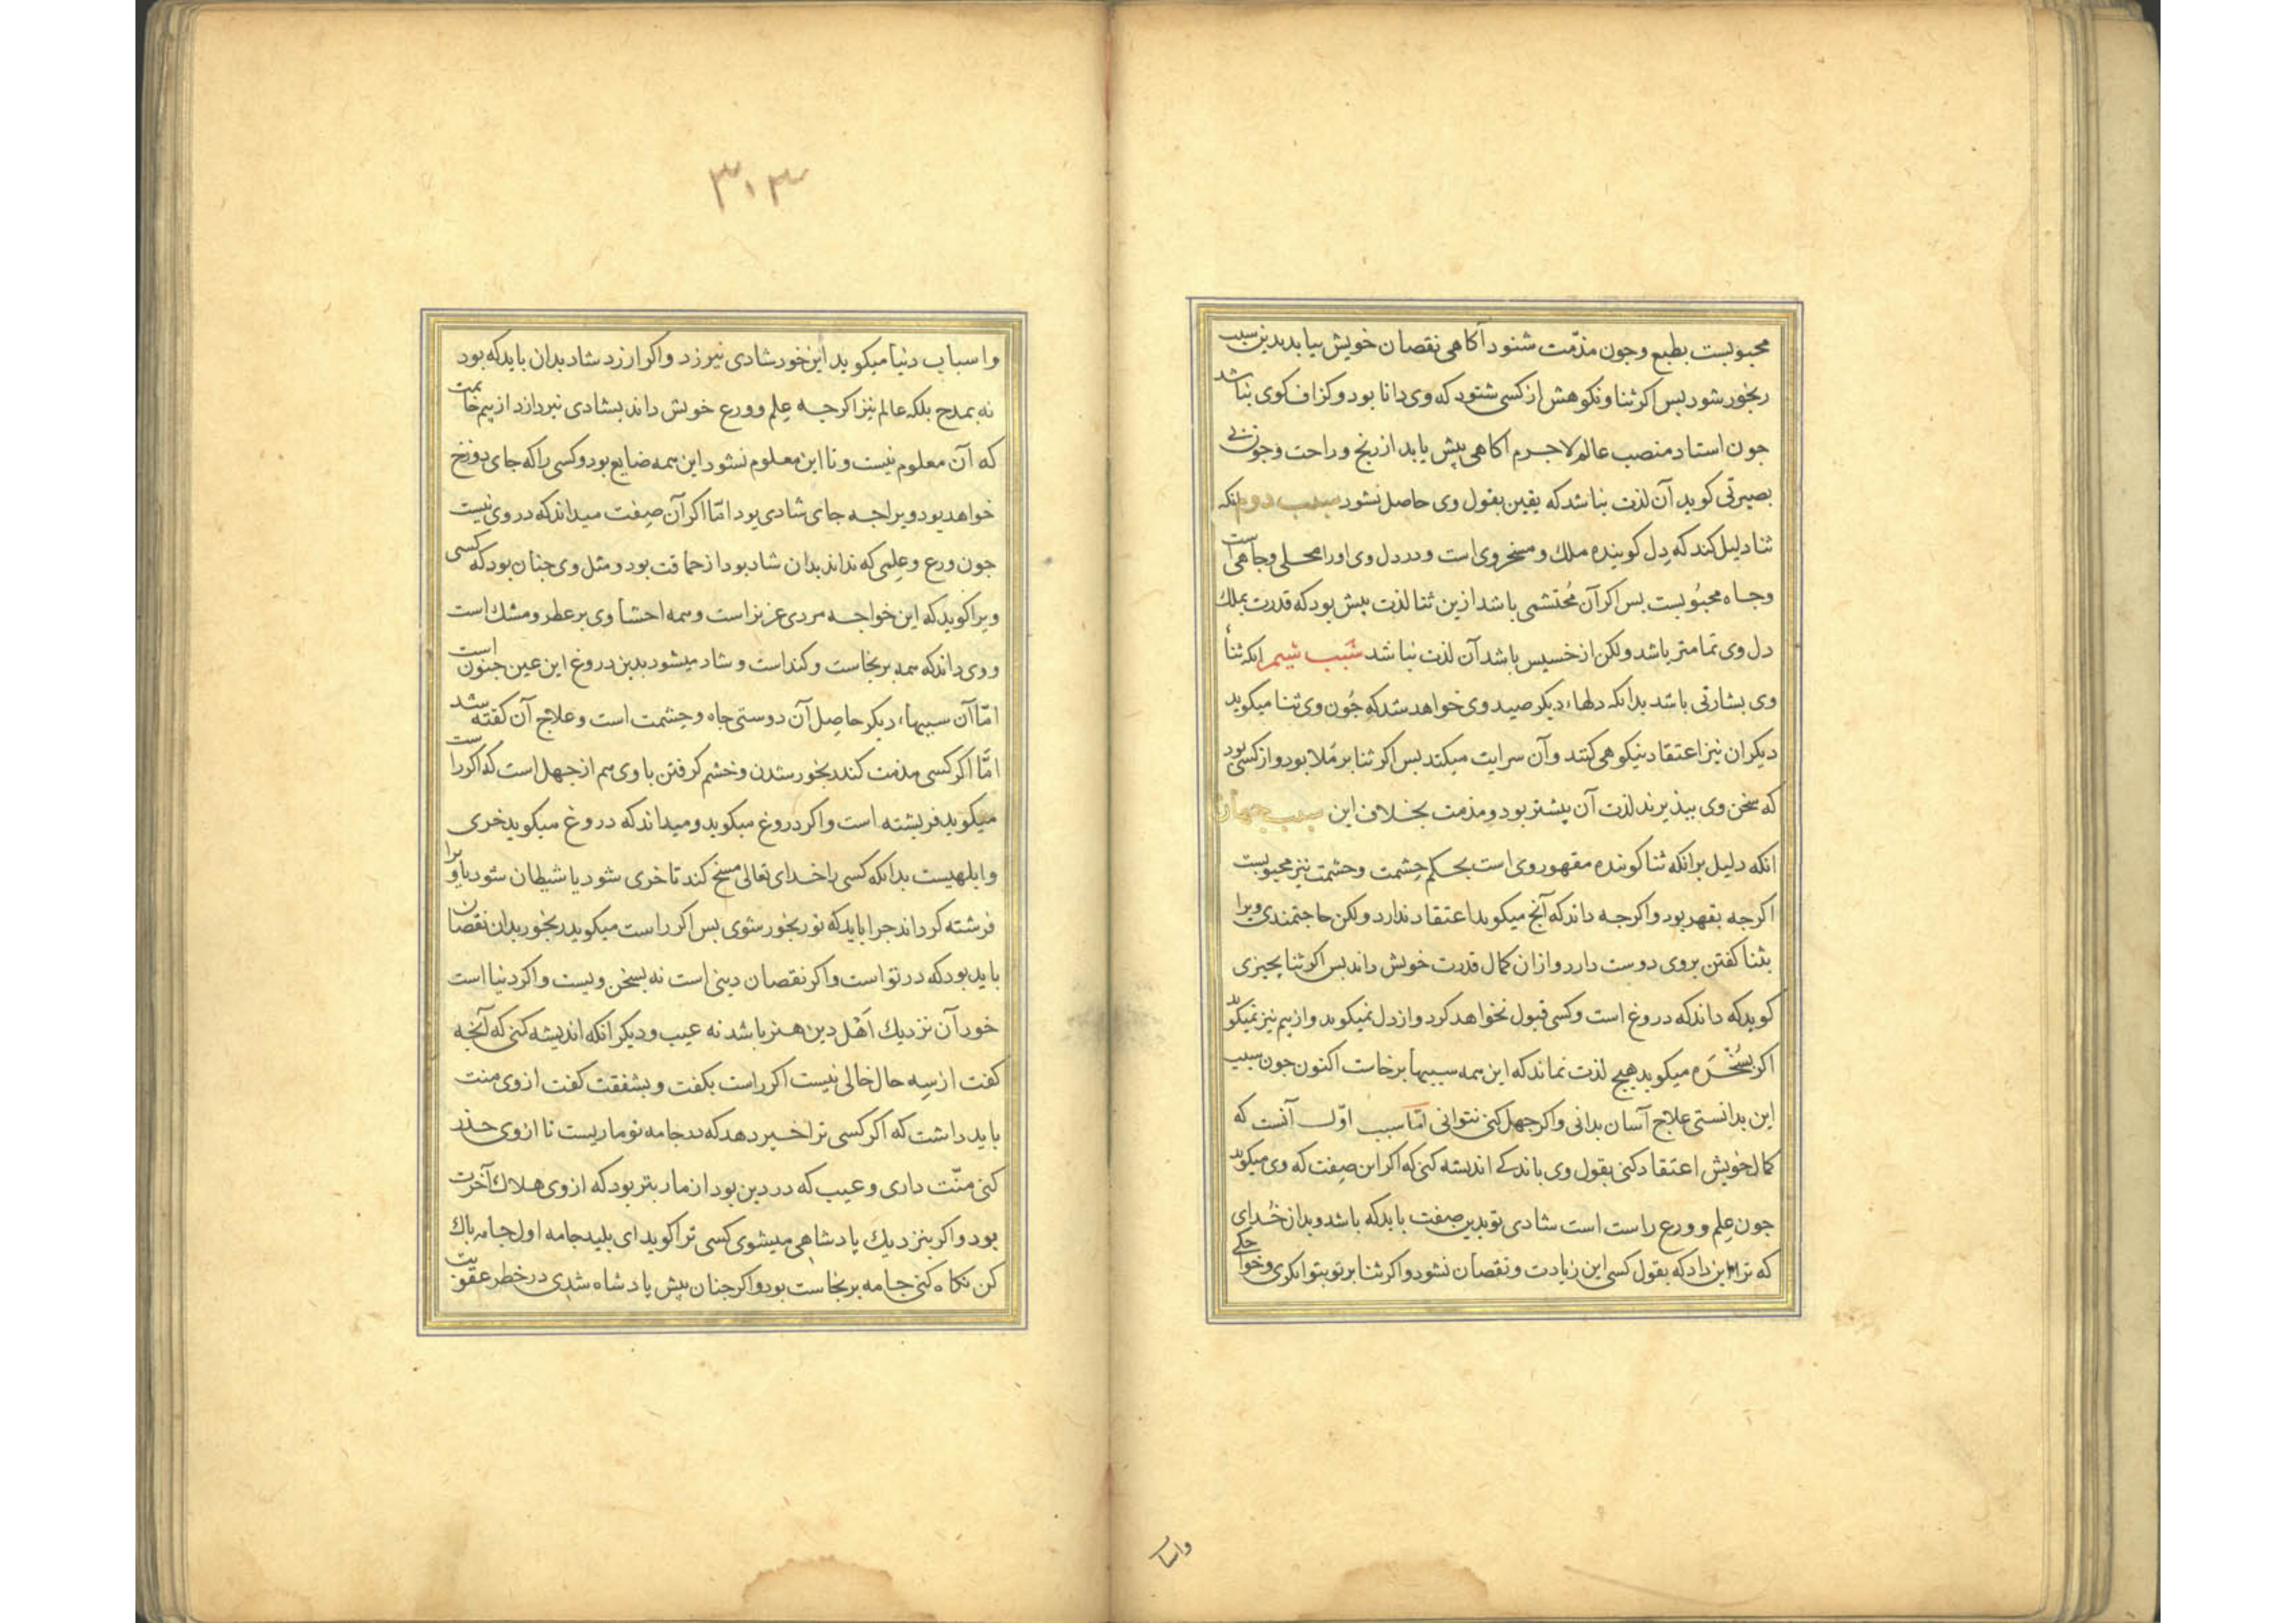 محبوبست بطبع وجون مذمّت شنود آکاهی نقصان خویش بیابد بدین سبب
رنجور شود بس اکر ثنا و نکوهش از کسی شنود که وی دانا بود و کزاف کوی نباشد
جون استاد منصب عالم لاجرم آکاهی بیش یابد از رنج و راحت وجون بی
بصیرتی کوید آن لذت نباشد که یقین بقول وی حاصل نشود سبب دوم انکه
ثنا دلیل کند که دِل کوینده ملک و مسخر وی است و در دل وی او را محلی و جاهی است
وجاه محبُوبست بس اکر آن مُحتشمی باشد ازین ثنا لذت بیش بود که قدرت بملک
دل وی تمامتر باشد ولکن از خسیس باشد آن لذت نباشد سَبب شیم انکه ثنأ
وی بشارتی باشد بدانکه دلهاء دیکر صید وی خواهد شد که جُون وی ثنا میکوید
دیکران نیز اعتقاد نیکوهی کنند و آن سرایت میکند بس اکر ثنا بر مَلا بود و از کسی بود
که سخن وی ببذیرند لذت آن بیشتر بود و مذمت بخلاف این سبب جهارم
انکه دلیل برانکه ثنا کوینده مقهور وی است بحکم حِشمت وحشمت نیز محبوبست
اکرجه بقهر بود واکرجه داند که آنج میکوید اعتقاد ندارد ولکن حاجتمندی ویرا
بثنا کفتن بروی دوست دارد و ازان کمال قدرت خویش داند بس اکر ثنا بجیزی
کوید که داند که دروغ است وکسی قبول نخواهد کرد و از دل نمیکوید و از بیم نیز نمیکوید
اکر بسُخْرَه میکوید هیچ لذت نماند که این همه سببها برخاست اکنون جون سبب
این بدانستی علاج آسان بدانی واکر جهل کنی نتوانی امّا سبب اوّل آنست که
کمال خویش اعتقاد کنی بقول وی باندکے اندیشه کنی که اکر این صِفت که وی میکوید
جون عِلم و ورع راست است شادی تو بدین صِفت باید که باشد و بدان خُدای
که ترا این داد که بقول کسی این زیادت و نقصان نشود واکر ثنا بر تو بتوانکری و خواجکی
واسبا
۳۰۳
واسباب دنیا میکوید این خود شادی نیرزد واکر ارزد شاد بدان باید که بود
نه بمدح بلکه عالم نیز اکرجه عِلم و ورع خویش داند بشادی نبردازد از بیم خاتمت
که آن معلوم نیست و تا این معلوم نشود این همه ضایع بود و کسی را که جای دوزخ
خواهد بود ویرا جه جای شادی بود امّا اکر آن صِفت میداند که در وی نیست
جون ورع وعلِمی که نداند بدان شاد بود از حماقت بود و مثل وی جنان بود که کسی
ویرا کوید که این خواجه مردی عزیز است وهمه احشأ وی بر عطر و مشک است
و وی داند که همه بر نجاست و کنداست و شاد میشود بدین دروغ این عین جنون است
امّا آن سببهاء دیکر حاصِل آن دوستی جاه وحِشمت است وعلاج آن کفته شد
امّا اکر کسی مذمت کند رنجور شدن وخشم کرفتن با وی هم از جهل است که اکر راست
میکوید فریشته است واکر دروغ میکوید ومیداند که دروغ میکوید خری
وابلهیست بدانکه کسی را خدای تعالی مسخ کند تا خری شود یا شیطان شود یا ویرا
فرشته کرداند جرا باید که تو رنجور شوی بس اکر راست میکوید رنجور بدان نقصان
باید بود که در تو است واکر نقصان دینی است نه بسخن ویست واکر دنیا است
خود آن نزدیک اَهْل دین هنر باشد نه عیب ودیکر انکه اندیشه کنی که آنجه
کفت از سه حال خالی نیست اکر راست بکفت و بشفقت کفت از وی منت
باید داشت که اکر کسی ترا خبر دهد که در جامه تو ماریست تا از وی حذر
کنی منّت داری و عیب که در دین بود از مار بتر بود که از وی هلاک آخرت
بود واکر بنزدیک پادشاهی میشوی کسی ترا کوید ای بلید جامه اول جامه باک
کن نکاه کنی جامه بر نجاست بود واکر جنان بیش پادشاه شدی در خطر عقوبت